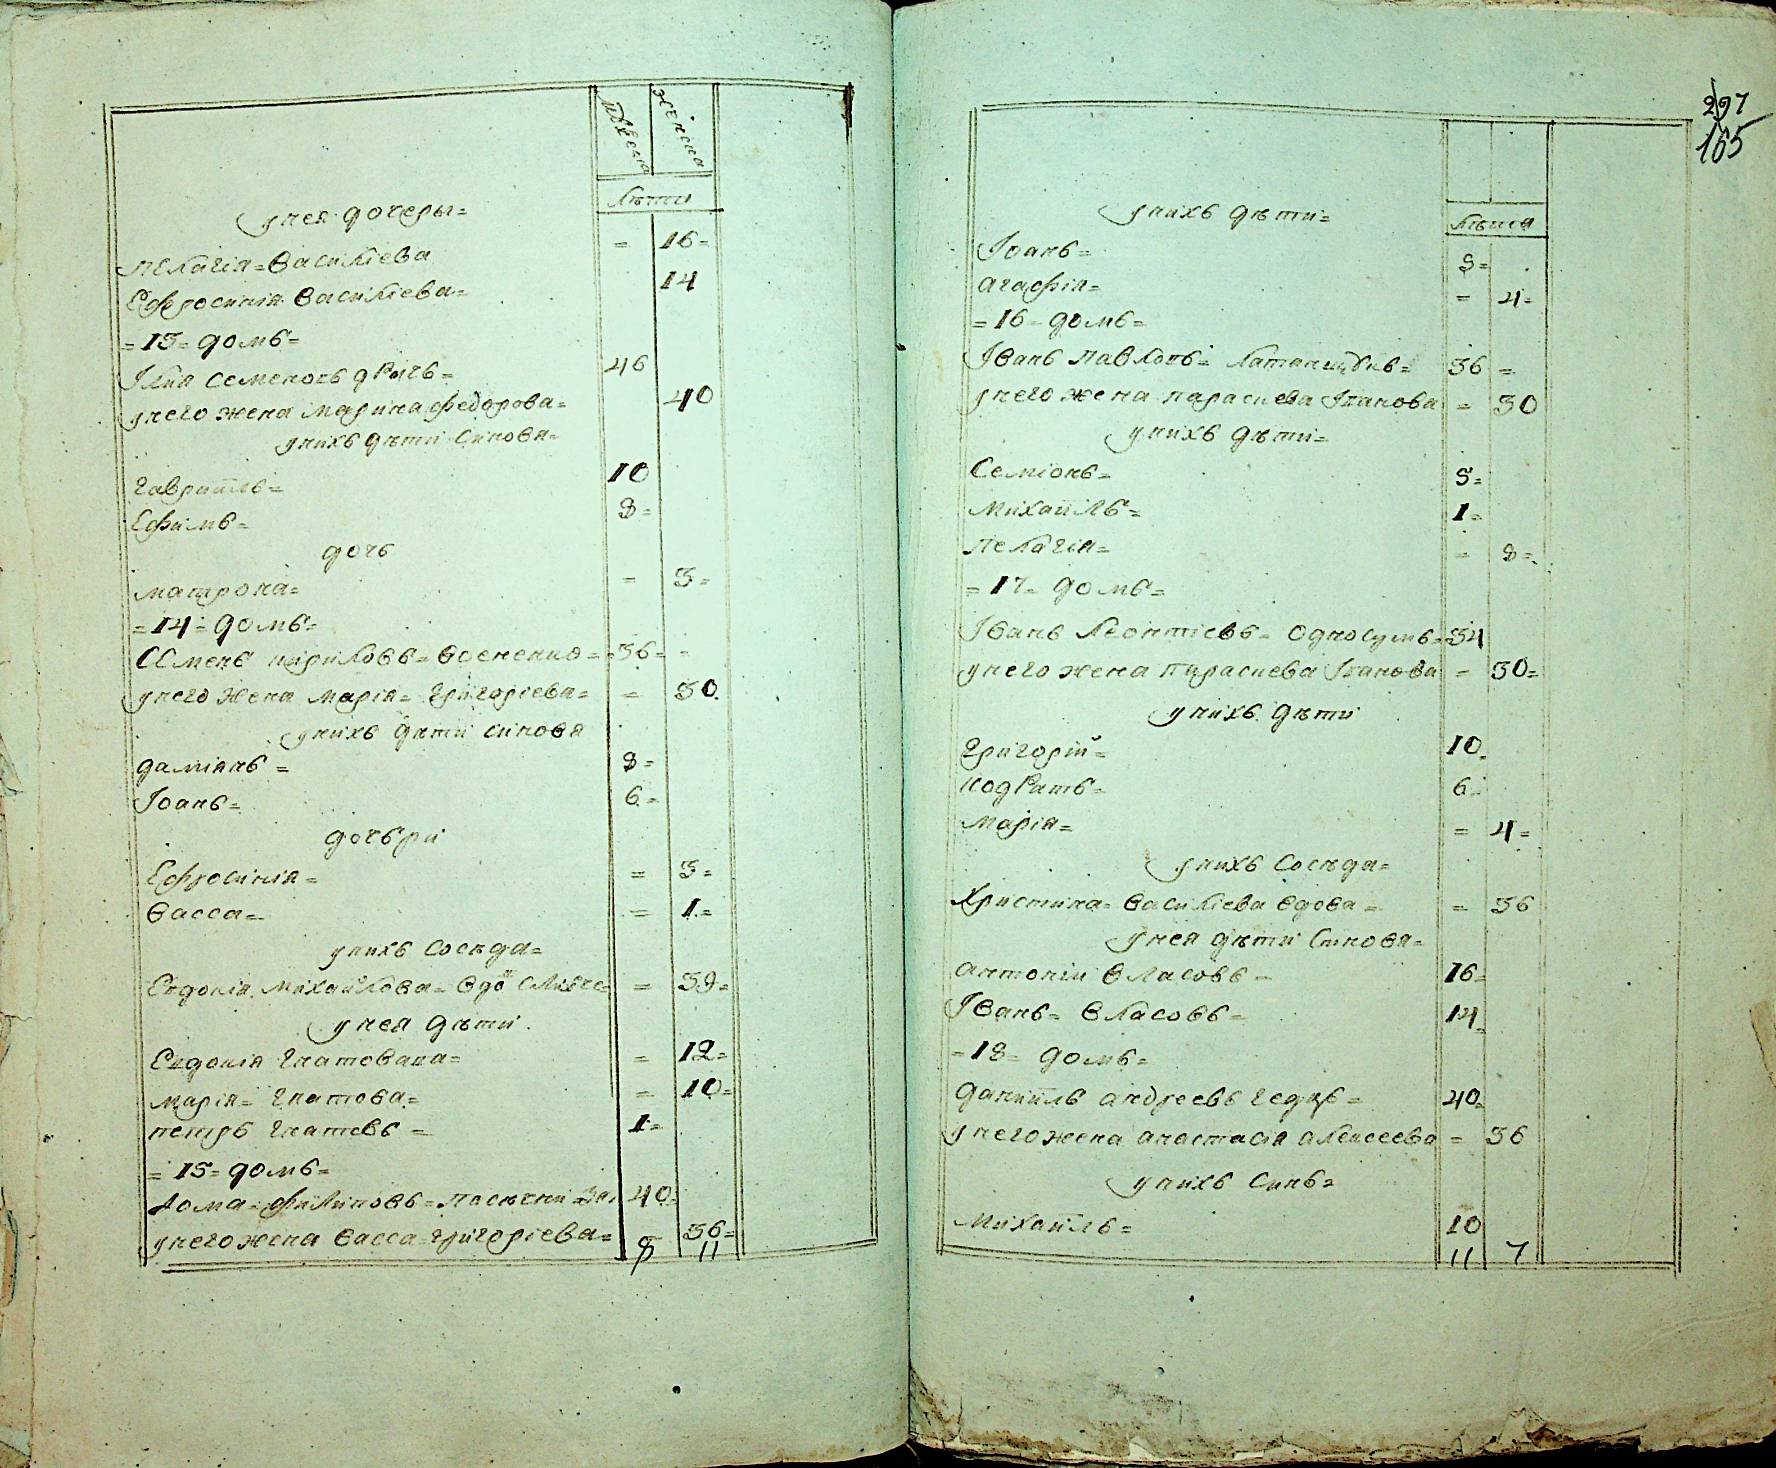 Мужеска Женска
Лѣта
у нея дочеры=
Пелагія=Василіева = 16=
Ефросинія Василіева= 14
=13= домъ=
Ілия Семеновъ 46
у него жена Марина Федорова= 40
у нихъ дѣти синовя=
Гавриїлъ= 10
Ефимъ= 8=
дочь
Матрона= = 3=
=14= домъ=
Семенъ Кириловъ= =36= =
у него жена Марія= Григоріева= = 30
у нихъ дѣти синовя
Даміянъ = 8=
Іоанъ= 6=
дочъри
Ефросинія= = 3=
Васса= = 1=
у нихъ сосѣда=
Евдокія Михайлова= вдо = 39=
у нея дѣти
Евдокія = 12=
Марія= Гнатова= = 10=
Петръ Гнатовъ = 1=
= 15= домъ=
Фома=Филиповъ= 40=
у него жена Васса Григоріева= 36=
9 11
297
165
Лѣта
у нихъ дѣти=
Іоанъ= 8=
Агафія= = 4=
=16= домъ=
Іванъ Павловъ= 36 =
у него жена Параскева Іванова = 30
у нихъ дѣти=
Семіонъ= 5=
Михаїлъ= 1=
Пелагія= = 8=
=17= домъ=
Іванъ Леонтіевъ= Односумъ= 34
у него жена Параскева Іванова = 30=
у нихъ дѣти
Григорій= 10
Кодратъ= 6=
Марія= = 4=
у нихъ сосѣда=
Христина= Василіева вдова = = 36
у нея дѣти синовя=
Антоній Власовъ= 16=
Іванъ= Власовъ= 14
=18= домъ=
Даниїлъ Андреевъ 40
у него жена Анастасія Алексеева = 36
у нихъ синъ=
Михаїлъ= 10
11 7